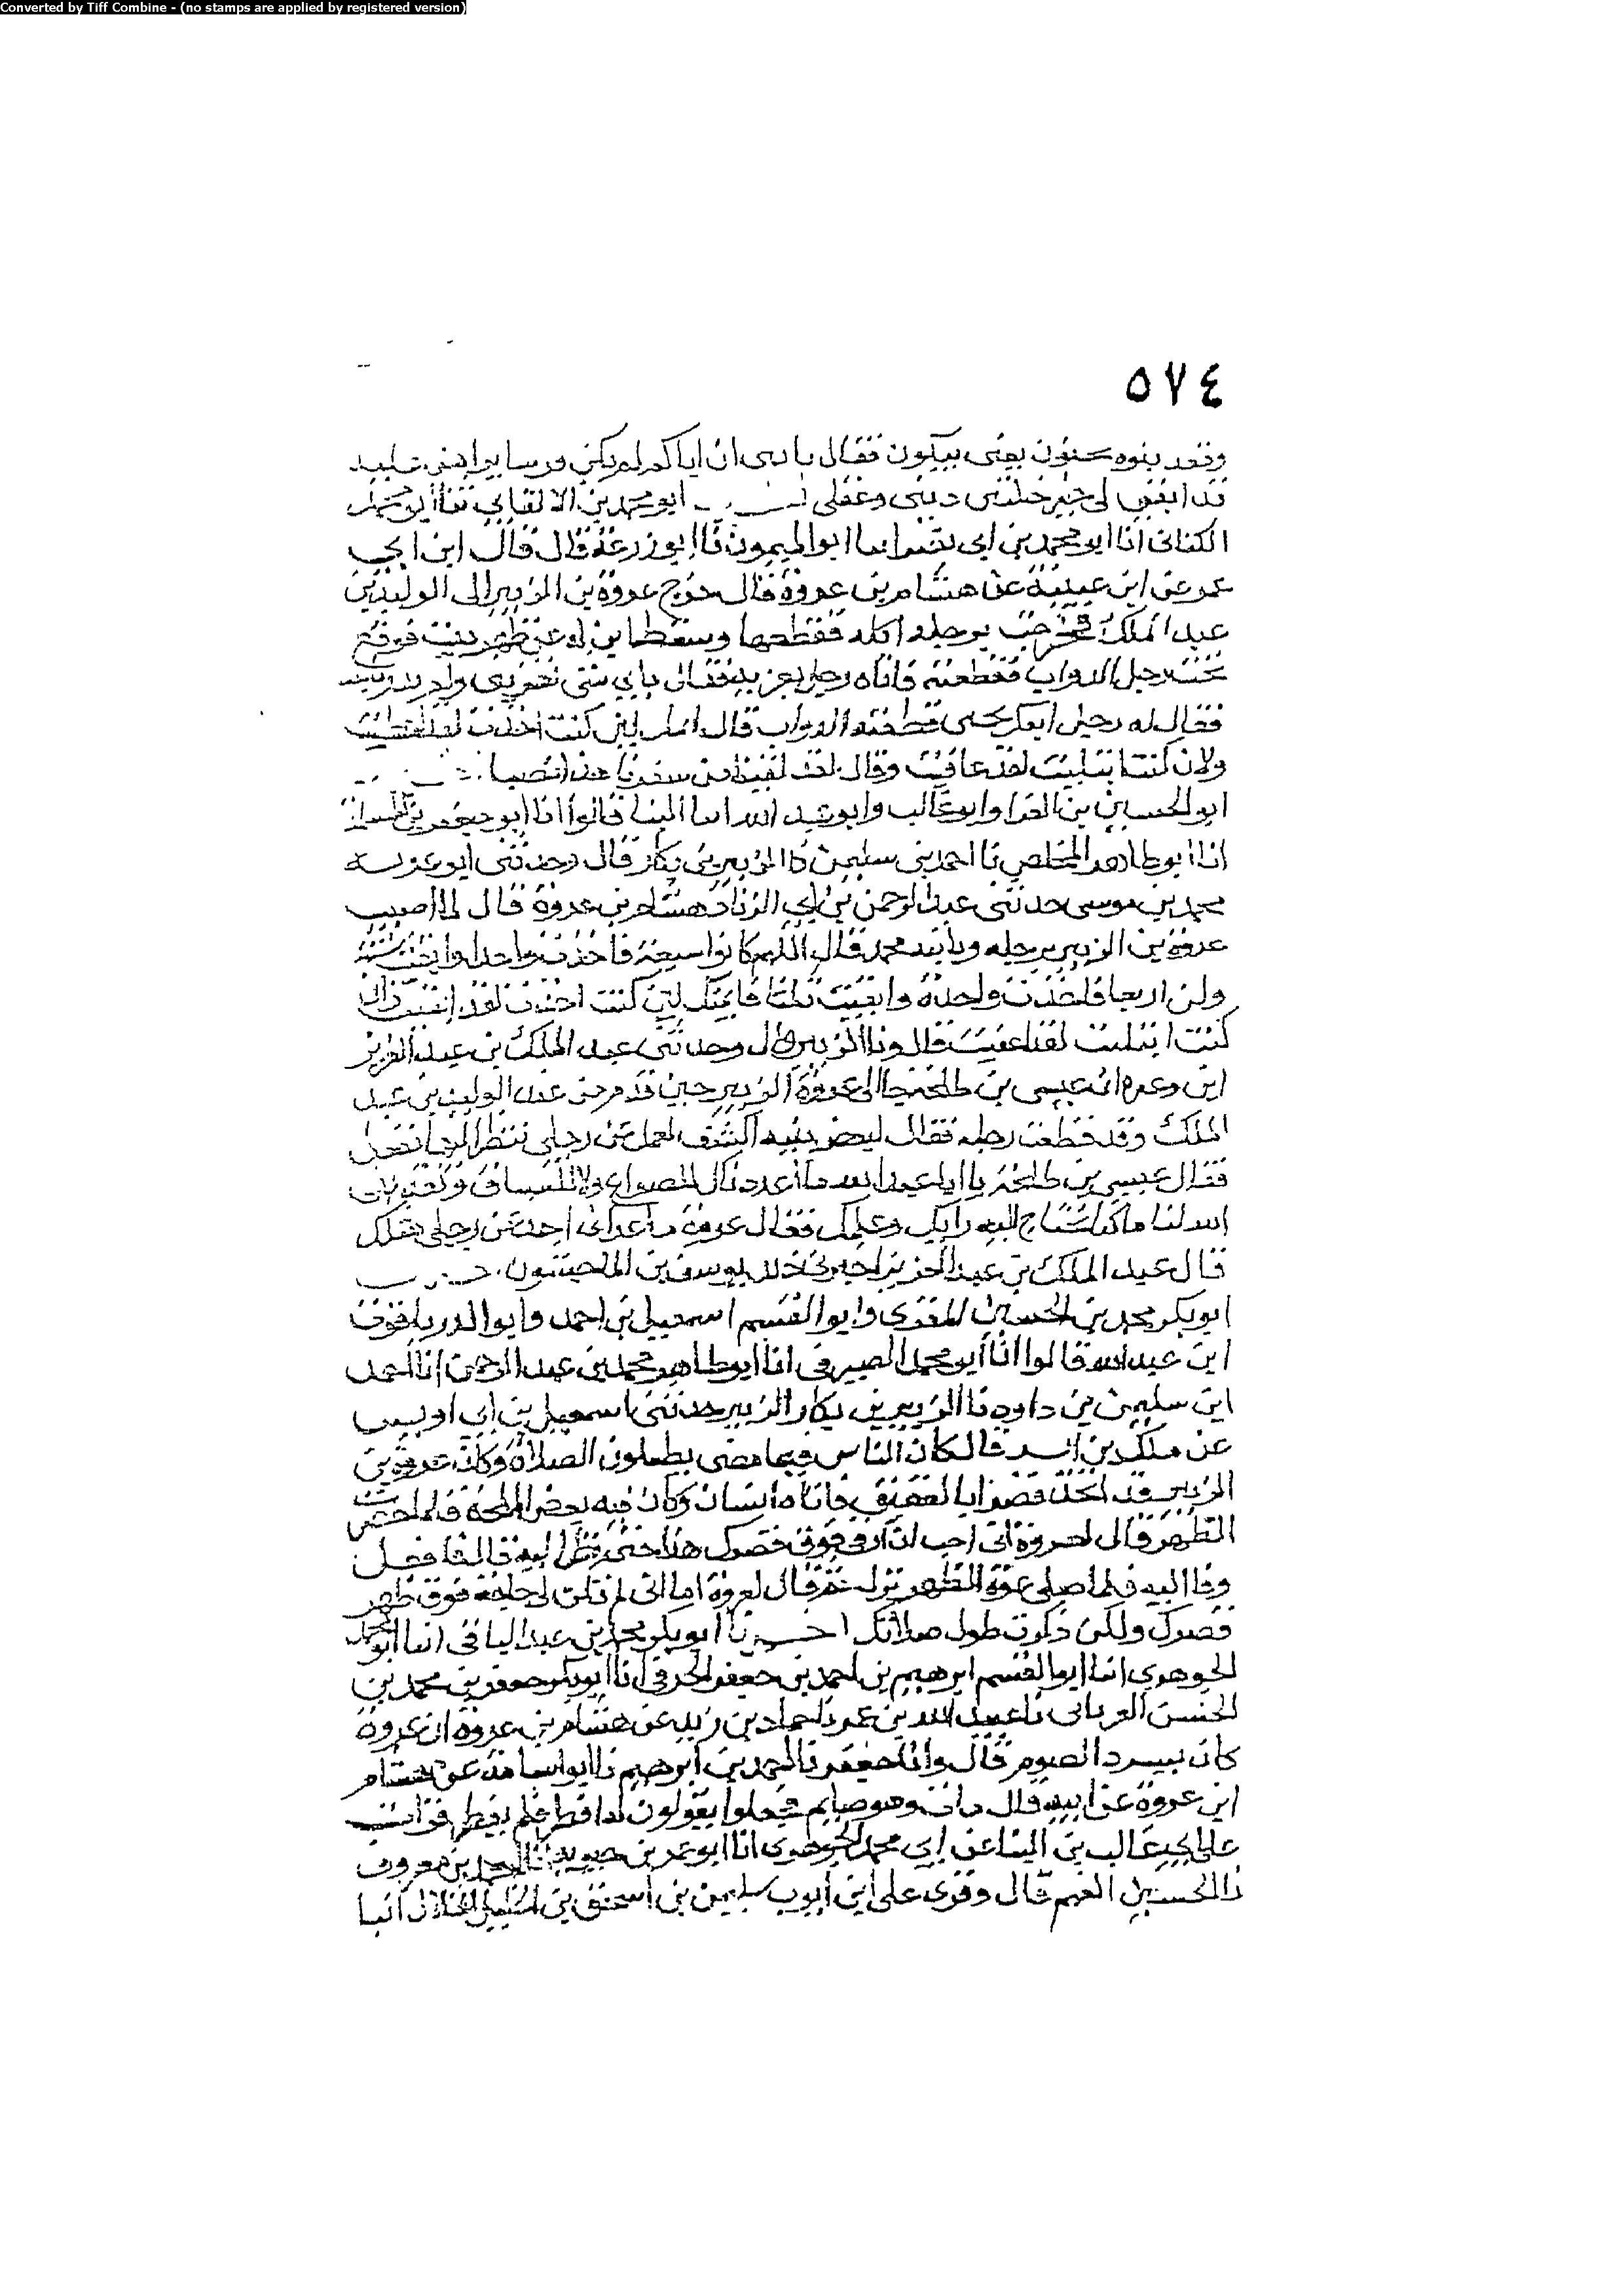 Converted by Tiff Combine - (no stamps are applied by registered version)
٥٧٤
وقعد بنوه يعنى يبكون فقال يا بنى ان اباكم لم يكن فرسا يراهن عليه
قد ابقى لى خير خلتين دينى وعقلى ابو محمد بن الاكفانى ثنا ابو محمد
الكنانى انا ابو محمد بن ابى نصر انا ابو الميمون نا ابو زرعة قال قال ابن ابى
عمر عن ابن عيينة عن هشام بن عروة قال خرج عروة بن الزبير الى الوليد بن
عبد الملك فخرجت برجله اكله فقطعها وسقط ابن له عن ظهر بيت فوقع
تحت رجل الدواب فقطعته فاتاه رجل يعزيه فقال باى شى تعزينى ولم يدر بابنه
فقال له رجل ابنك يحيى قطعته الدواب قال لئن كنت اخذت لقد اعطيت
ولان كنت ابتليت لقد عافيت وقال لقد لقينا من سفرنا هذا نصبا
ابو الحسين بن الفرا وابو غالب وابو عبد الله انبا البنا قالوا انا ابو جعفر بن المسلمة
انا ابو طاهر المخلص نا احمد بن سليمن نا الزبير بن بكار قال وحدثنى ابو غزية
محمد بن موسى حدثنى عبد الرحمن بن ابى الزناد هشام بن عروة قال لما اصيب
عروة بن الزبير برجله وبابنه محمد قال اللهم كانوا سبعة فاخذت واحدا وابقيت ستة
وكن اربعا فاخذت واحدة وابقيت ثلثا فايمنك لين كنت اخذت لقد ابقيت ولئن
كنت ابتليت لقد اعفيت قال ونا الزبير قال وحدثنى عبد الملك بن عبد العزيز
ان عيسى بن طلحة جا الى عروة بن الزبير حين قدم من عند الوليد بن عبد
الملك وقد قطعت رجله فقال لبعض بنيه اكشف لعمك عن رجلى ننظر اليها ففعل
فقال عيسى بن طلحة يا ابا عبد الله ما اعددناك للصراع ولا للسباق ولقد ابقى
الله لنا ما كنا نحتاج اليه رايك وعلمك فقال عروة ما عزانى احد عن رجلى مثلك
قال عبد الملك بن عبد العزيز اخبرنى خالد يوسف بن الماجشون
ابو بكر محمد بن الحسين المقرى وابو القسم اسمعيل بن احمد وابو الدر ياقوت
ابن عبد الله قالوا انا ابو محمد الصيرفى انا ابو طاهر محمد بن عبد الرحمن انا احمد
ابن سليمن بن داود نا الزبير بن بكار الزبير حدثنى اسمعيل بن ابى اويس
عن ملك بن انس قال كان الناس فيما مضى يطيلون الصلاة وكان عروة بن
الزبير قد اتخذ قصرا بالعقيق فاتاه انسان وكان فيه بعض الملحة فلما حضرت
الظهر قال لعروة انى احب ان ارقى فوق قصرك هذا حتى انظر اليه قال فافعل
وفا اليه فلما صلى عروة الظهر نزل ثم قال لعروة اما انى لم تكن لى حاجة فوق ظهر
قصرك ولكن ذكرت طول صلاتك اخبرنا ابو بكر محمد بن عبد الباقى انبا ابو محمد
الجوهرى انا ابو القسم ابرهيم بن احمد بن جعفر الخرقى انا ابو بكر جعفر بن محمد بن
الحسن الفريابى نا عبيد الله بن عمر نا حماد بن زيد عن هشام بن عروة ان عروة
كان يسرد الصوم قال وانا جعفر نا احمد بن ابرهيم نا ابو اسامة عن هشام
ابن عروة عن ابيه قال مات وهو صايم فجعلوا يقولون له افطر فلم يفطر قرات
على ابى غالب بن البنا عن ابى محمد الجوهرى انا ابو عمر بن حيوية انا احمد بن معروف
نا الحسين الفهم قال وقرى على ابن ايوب سليمن بن اسحق بن الخليل الجلاب انبا